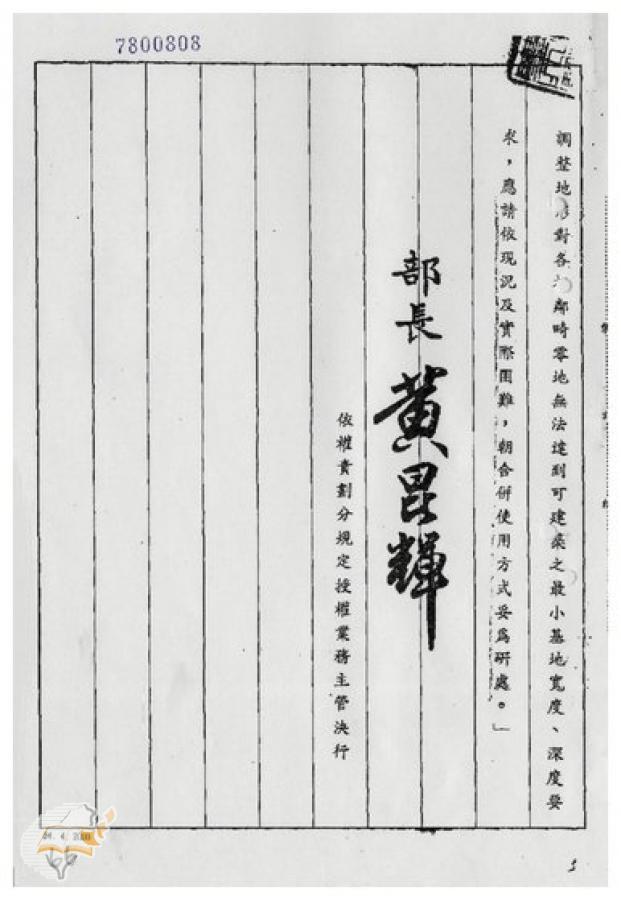 7800808
調整地形對各相鄰畸零地無法達到可建築之最小基地寬度、深度要
求，應請依現況及實際困難，朝合併使用方式妥為研處。」
部長 黃昆輝
依權責劃分規定授權業務主管決行
24. 4. 2000
5